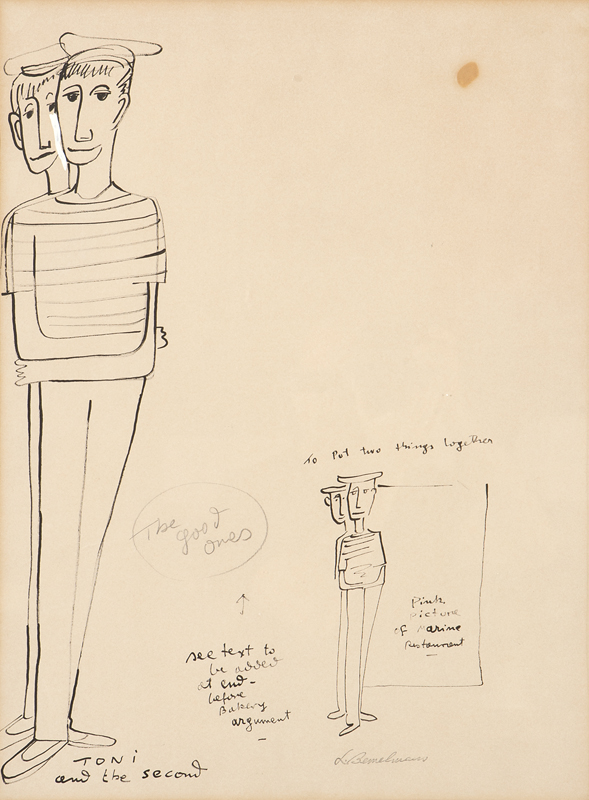 To Put two things together
The
good
ones
↑
see text to
be added
at end -
before
Bakery
argument
Pink
picture
of Marine
Restaurant
TONi
and the second
L. Bemelmans